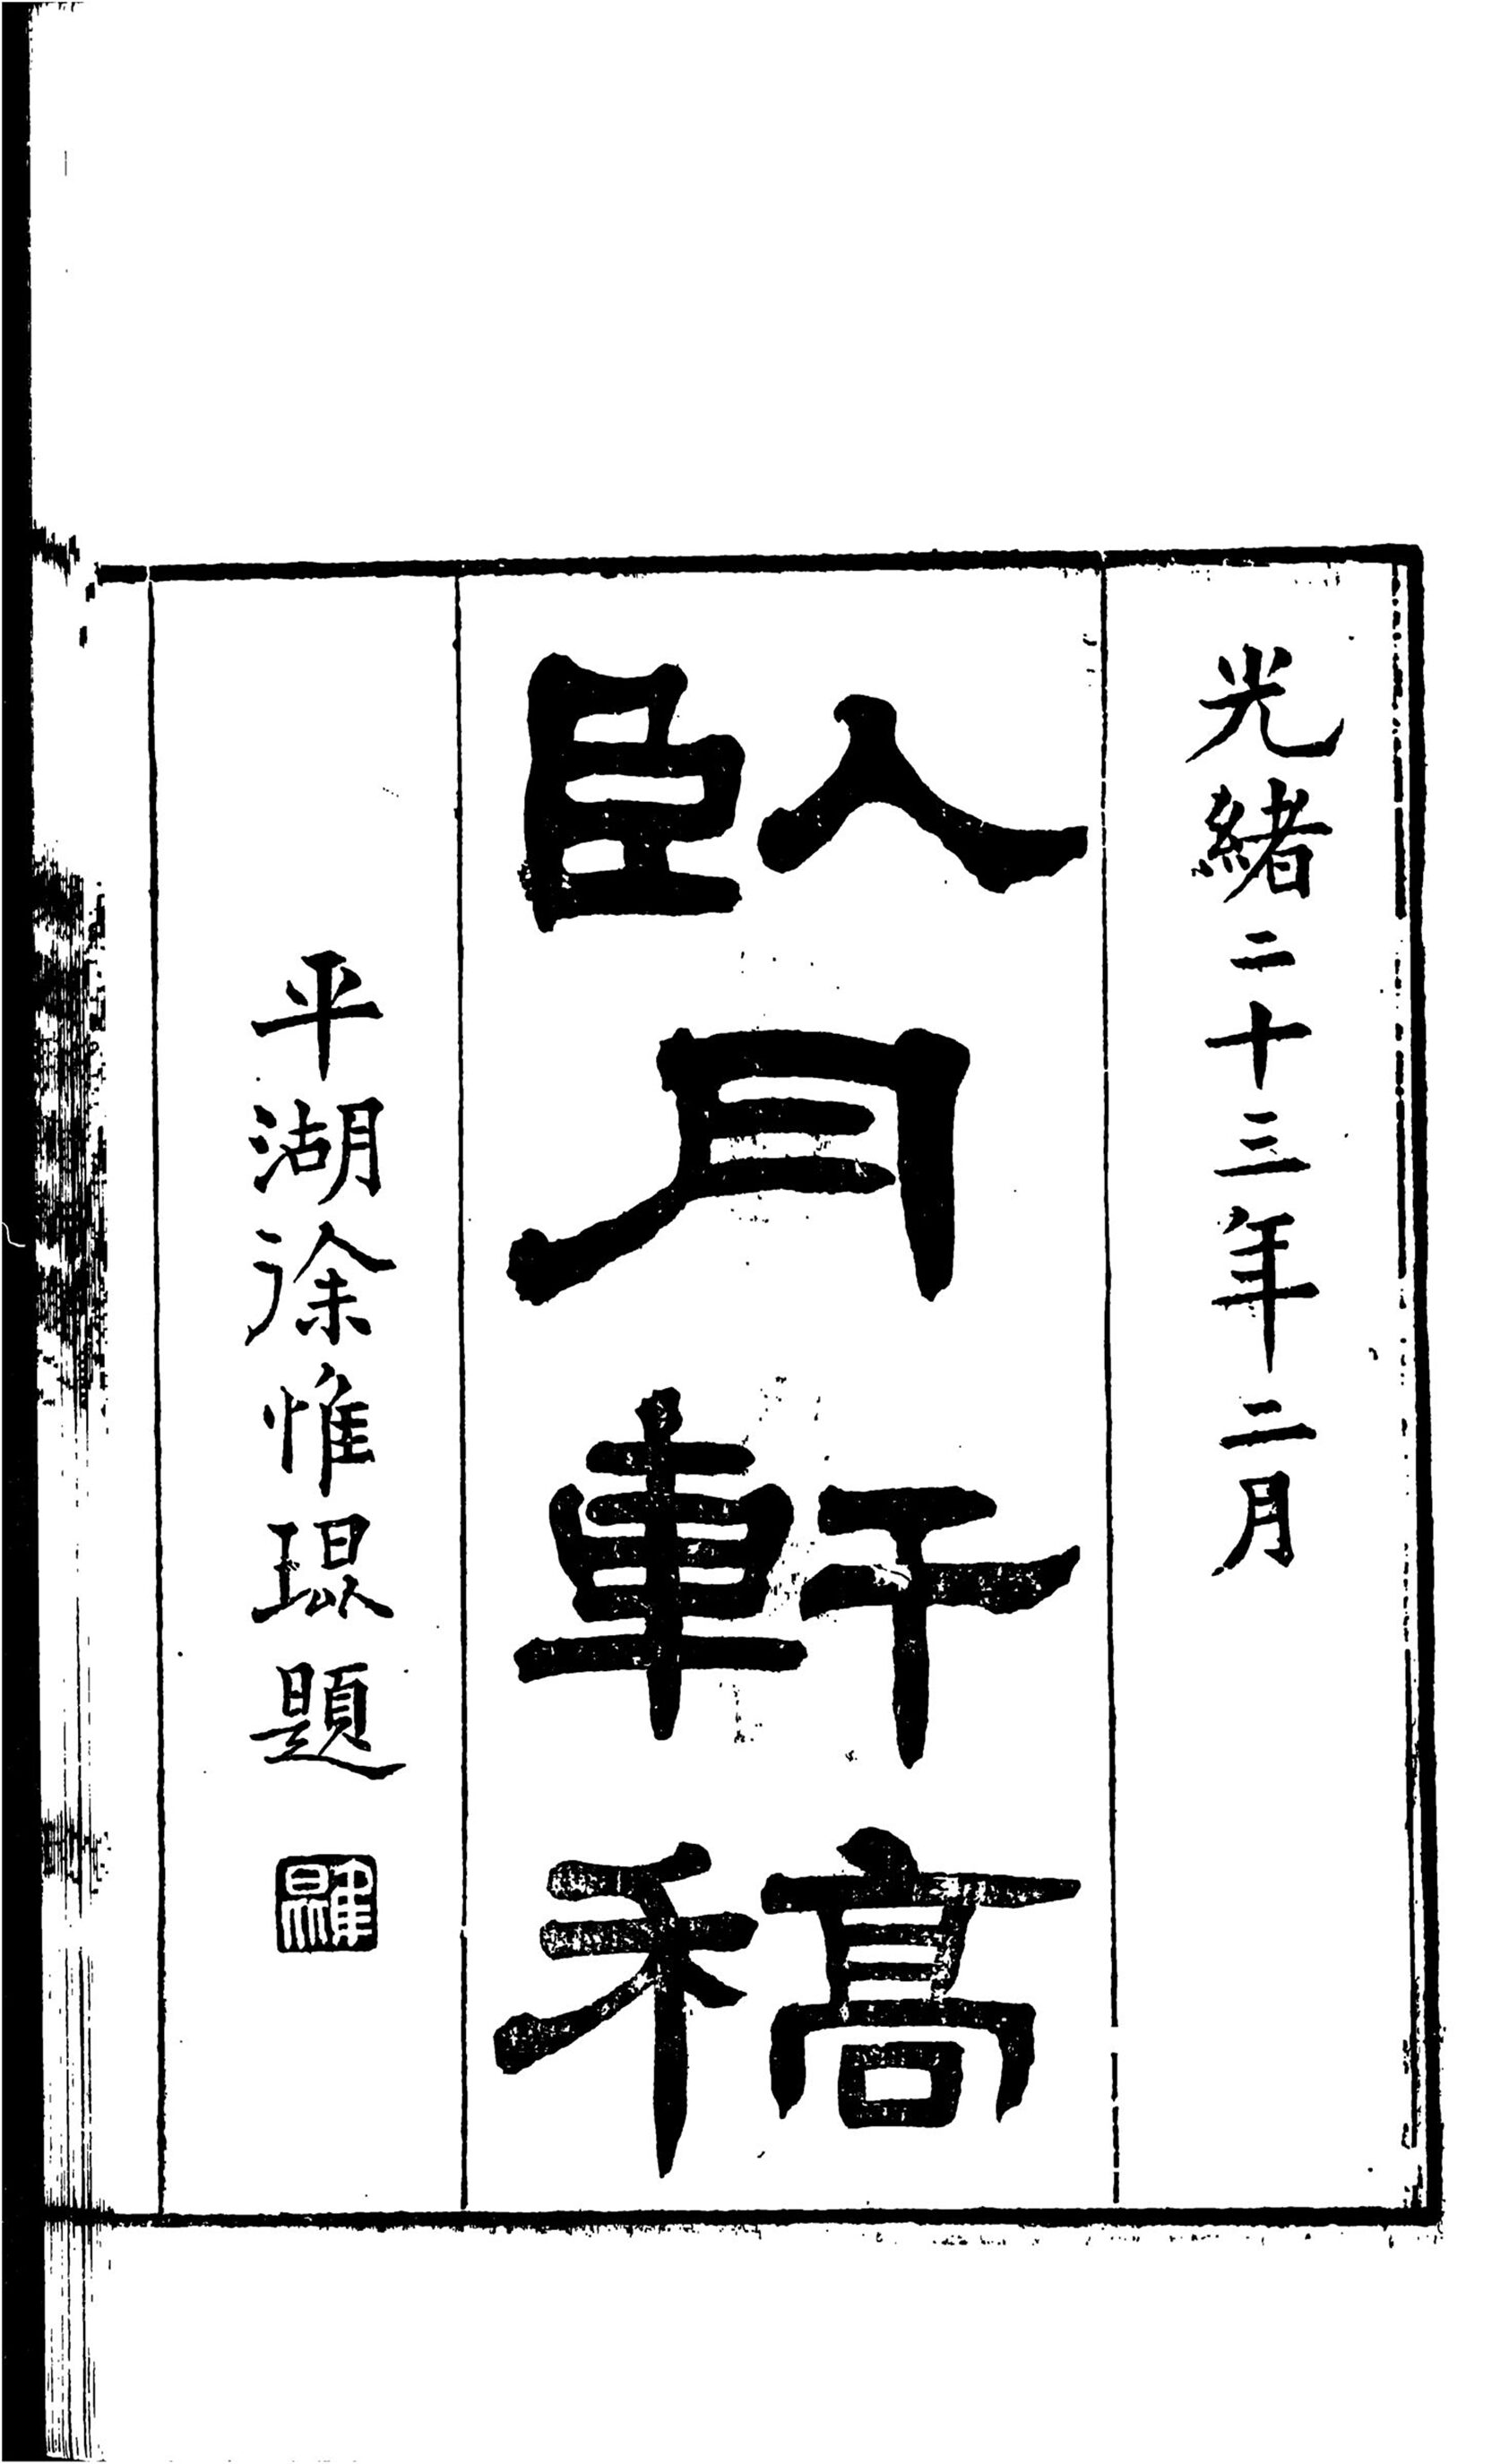 光緒二十三年二月
臥月軒稿
平湖徐惟琨題